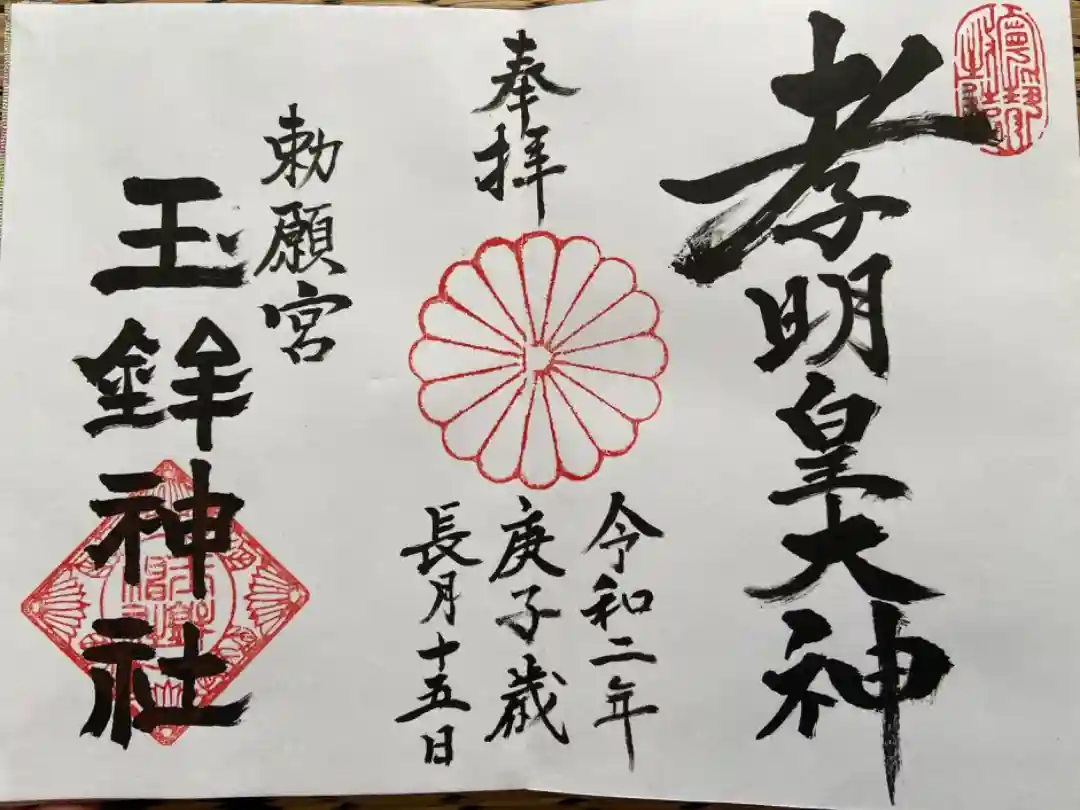 孝明皇大神
奉拝
令和二年
庚子歳
長月十五日
勅願宮
玉鉾神社